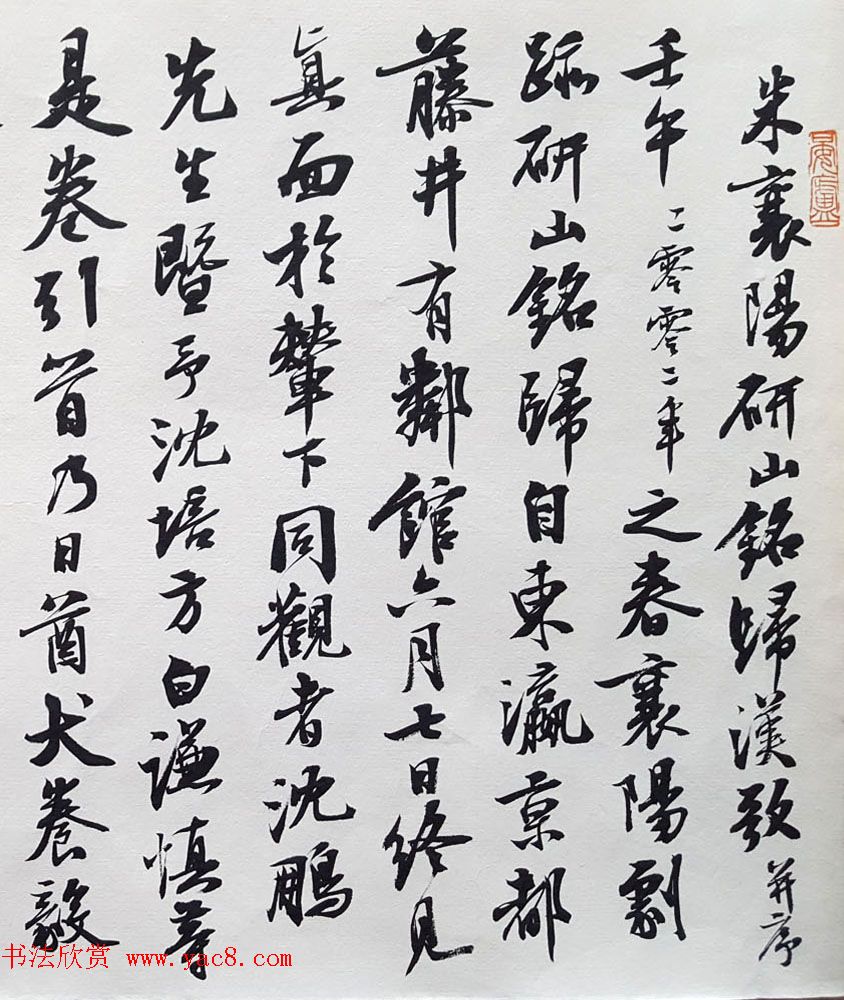 米襄陽研山銘歸漢歌并序
壬午二零零二年之春襄陽劇
跡研山銘歸自東瀛京都
藤井有鄰館六月七日終見
真面於輦下同觀者沈鵬
先生暨予沈培方白謙慎等
是卷引首乃日酋犬養毅
书法欣赏 www.yac8.com